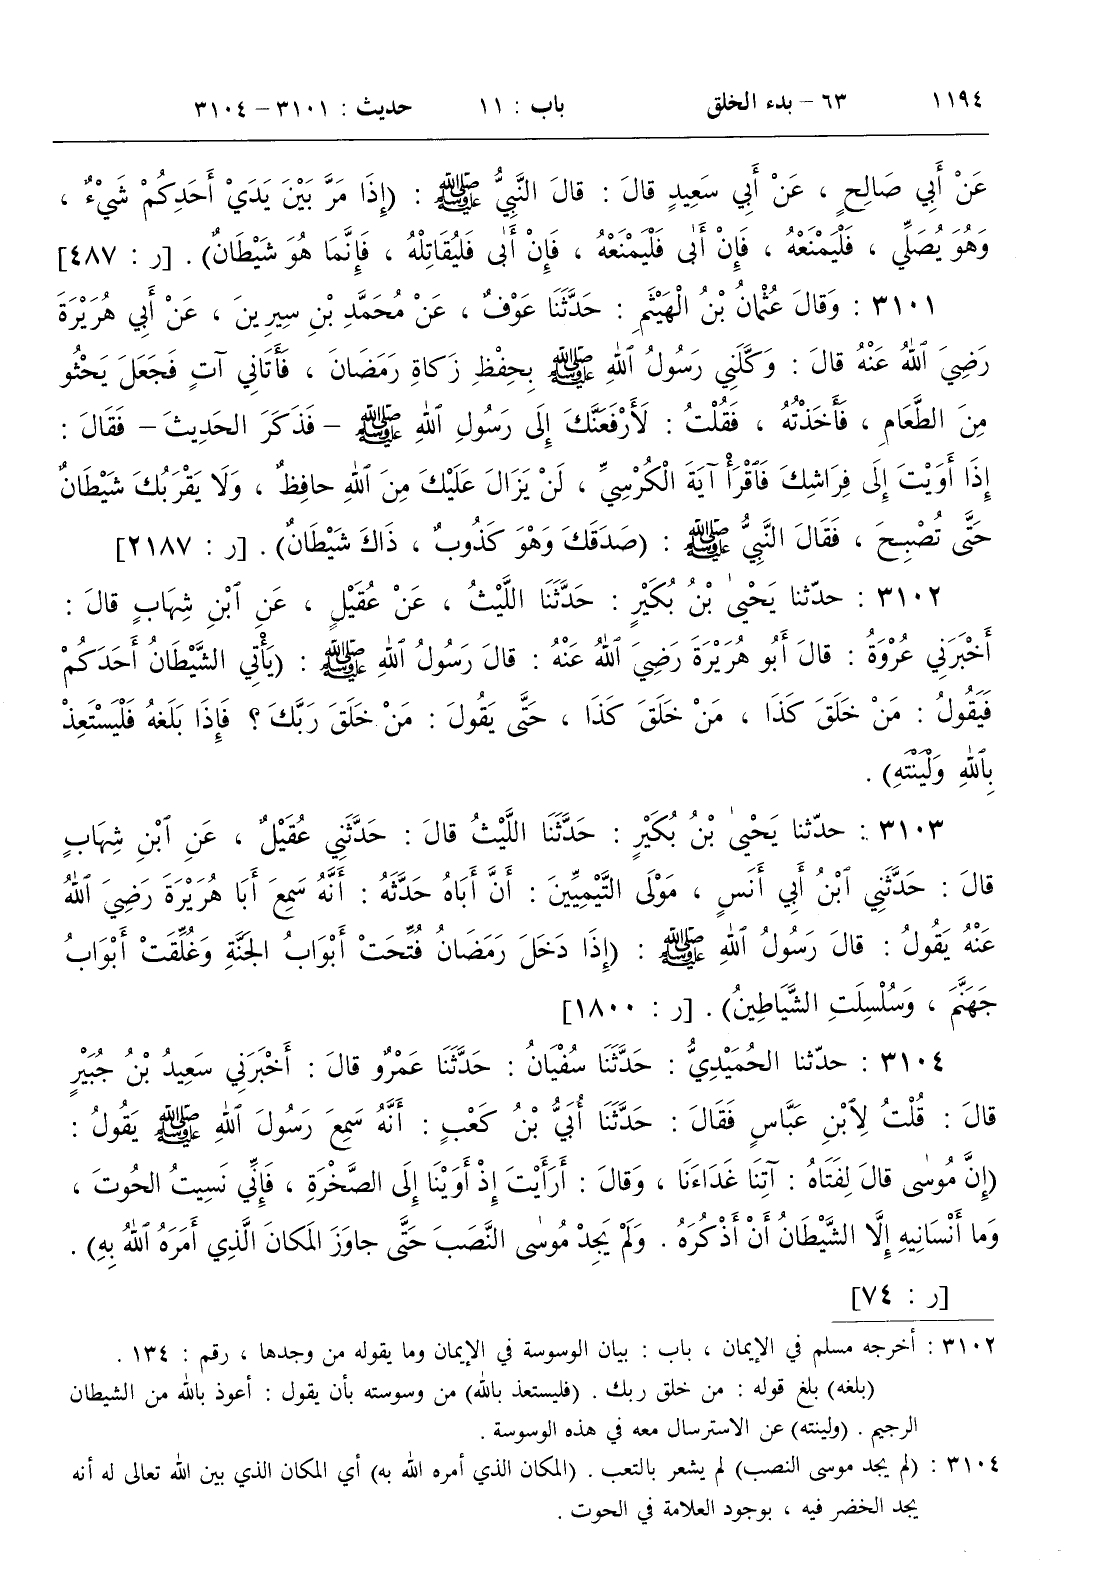 ١١٩٤ ٦٣ – بدء الخلق باب : ١١ حديث : ٣١٠١ – ٣١٠٤
عَنْ أَبِي صَالِحٍ ، عَنْ أَبِي سَعِيدٍ قالَ : قالَ النَّبِيُّ ﷺ : (إِذَا مَرَّ بَيْنَ يَدَيْ أَحَدِكُمْ شَيْءٌ ،
وَهُوَ يُصَلِّي ، فَلْيَمْنَعْهُ ، فَإِنْ أَبَى فَلْيَمْنَعْهُ ، فَإِنْ أَبَى فَلْيُقَاتِلْهُ ، فَإِنَّمَا هُوَ شَيْطَانٌ) . [ر : ٤٨٧]
٣١٠١ : وَقالَ عُثْمانُ بْنُ الْهَيْثَمِ : حَدَّثَنَا عَوْفٌ ، عَنْ مُحَمَّدِ بْنِ سِيرِينَ ، عَنْ أَبِي هُرَيْرَةَ
رَضِيَ ٱللهُ عَنْهُ قالَ : وَكَّلَنِي رَسُولُ ٱللهِ ﷺ بِحِفْظِ زَكاةِ رَمَضَانَ ، فَأَتَانِي آتٍ فَجَعَلَ يَحْثُو
مِنَ الطَّعَامِ ، فَأَخَذْتُهُ ، فَقُلْتُ : لَأَرْفَعَنَّكَ إِلَى رَسُولِ ٱللهِ ﷺ – فَذَكَرَ الحَدِيثَ – فَقَالَ :
إِذَا أَوَيْتَ إِلَى فِرَاشِكَ فَٱقْرَأْ آيَةَ الْكُرْسِيِّ ، لَنْ يَزَالَ عَلَيْكَ مِنَ ٱللهِ حافِظٌ ، وَلَا يَقْرَبُكَ شَيْطَانٌ
حَتَّى تُصْبِحَ ، فَقَالَ النَّبِيُّ ﷺ : (صَدَقَكَ وَهْوَ كَذُوبٌ ، ذَاكَ شَيْطَانٌ) . [ر : ٢١٨٧]
٣١٠٢ : حدّثنا يَحْيىٰ بْنُ بُكَيْرٍ : حَدَّثَنَا اللَّيْثُ ، عَنْ عُقَيْلٍ ، عَنِ ٱبْنِ شِهَابٍ قالَ :
أَخْبَرَنِي عُرْوَةُ : قالَ أَبُو هُرَيْرَةَ رَضِيَ ٱللهُ عَنْهُ : قالَ رَسُولُ ٱللهِ ﷺ : (يَأْتِي الشَّيْطَانُ أَحَدَكُمْ
فَيَقُولُ : مَنْ خَلَقَ كَذَا ، مَنْ خَلَقَ كَذَا ، حَتَّى يَقُولَ : مَنْ خَلَقَ رَبَّكَ ؟ فَإِذَا بَلَغهُ فَلْيَسْتَعِذْ
بِٱللهِ وَلْيَنْتَهِ) .
٣١٠٣ : حدّثنا يَحْيىٰ بْنُ بُكَيْرٍ : حَدَّثَنَا اللَّيْثُ قالَ : حَدَّثَنِي عُقَيْلٌ ، عَنِ ٱبْنِ شِهَابٍ
قالَ : حَدَّثَنِي ٱبْنُ أَبِي أَنَسٍ ، مَوْلَى التَّيْمِيِّينَ : أَنَّ أَبَاهُ حَدَّثَهُ : أَنَّهُ سَمِعَ أَبَا هُرَيْرَةَ رَضِيَ ٱللهُ
عَنْهُ يَقُولُ : قالَ رَسُولُ ٱللهِ ﷺ : (إِذَا دَخَلَ رَمَضَانُ فُتِّحَتْ أَبْوَابُ الجَنَّةِ وَغُلِّقَتْ أَبْوَابُ
جَهَنَّمَ ، وَسُلْسِلَتِ الشَّيَاطِينُ) . [ر : ١٨٠٠]
٣١٠٤ : حدّثنا الحُمَيْدِيُّ : حَدَّثَنَا سُفْيَانُ : حَدَّثَنَا عَمْرٌو قالَ : أَخْبَرَنِي سَعِيدُ بْنُ جُبَيْرٍ
قالَ : قُلْتُ لِٱبْنِ عَبَّاسٍ فَقَالَ : حَدَّثَنَا أُبَيُّ بْنُ كَعْبٍ : أَنَّهُ سَمِعَ رَسُولَ ٱللهِ ﷺ يَقُولُ :
(إِنَّ مُوسٰى قالَ لِفَتَاهُ : آتِنَا غَدَاءَنَا ، وَقالَ : أَرَأَيْتَ إِذْ أَوَيْنَا إِلَى الصَّخْرَةِ ، فَإِنِّي نَسِيتُ الحُوتَ ،
وَما أَنْسَانِيهِ إِلَّا الشَّيْطَانُ أَنْ أَذْكُرَهُ . وَلَمْ يَجِدْ مُوسٰى النَّصَبَ حَتَّى جاوَزَ المَكانَ الَّذِي أَمَرَهُ ٱللهُ بِهِ) .
[ر : ٧٤]
٣١٠٢ : أخرجه مسلم في الإيمان ، باب : بيان الوسوسة في الإيمان وما يقوله من وجدها ، رقم : ١٣٤ .
(بلغه) بلغ قوله : من خلق ربك . (فليستعذ بالله) من وسوسته بأن يقول : أعوذ بالله من الشيطان
الرجيم . (ولينته) عن الاسترسال معه في هذه الوسوسة .
٣١٠٤ : (لم يجد موسى النصب) لم يشعر بالتعب . (المكان الذي أمره الله به) أي المكان الذي بين الله تعالى له أنه
يجد الخضر فيه ، بوجود العلامة في الحوت .